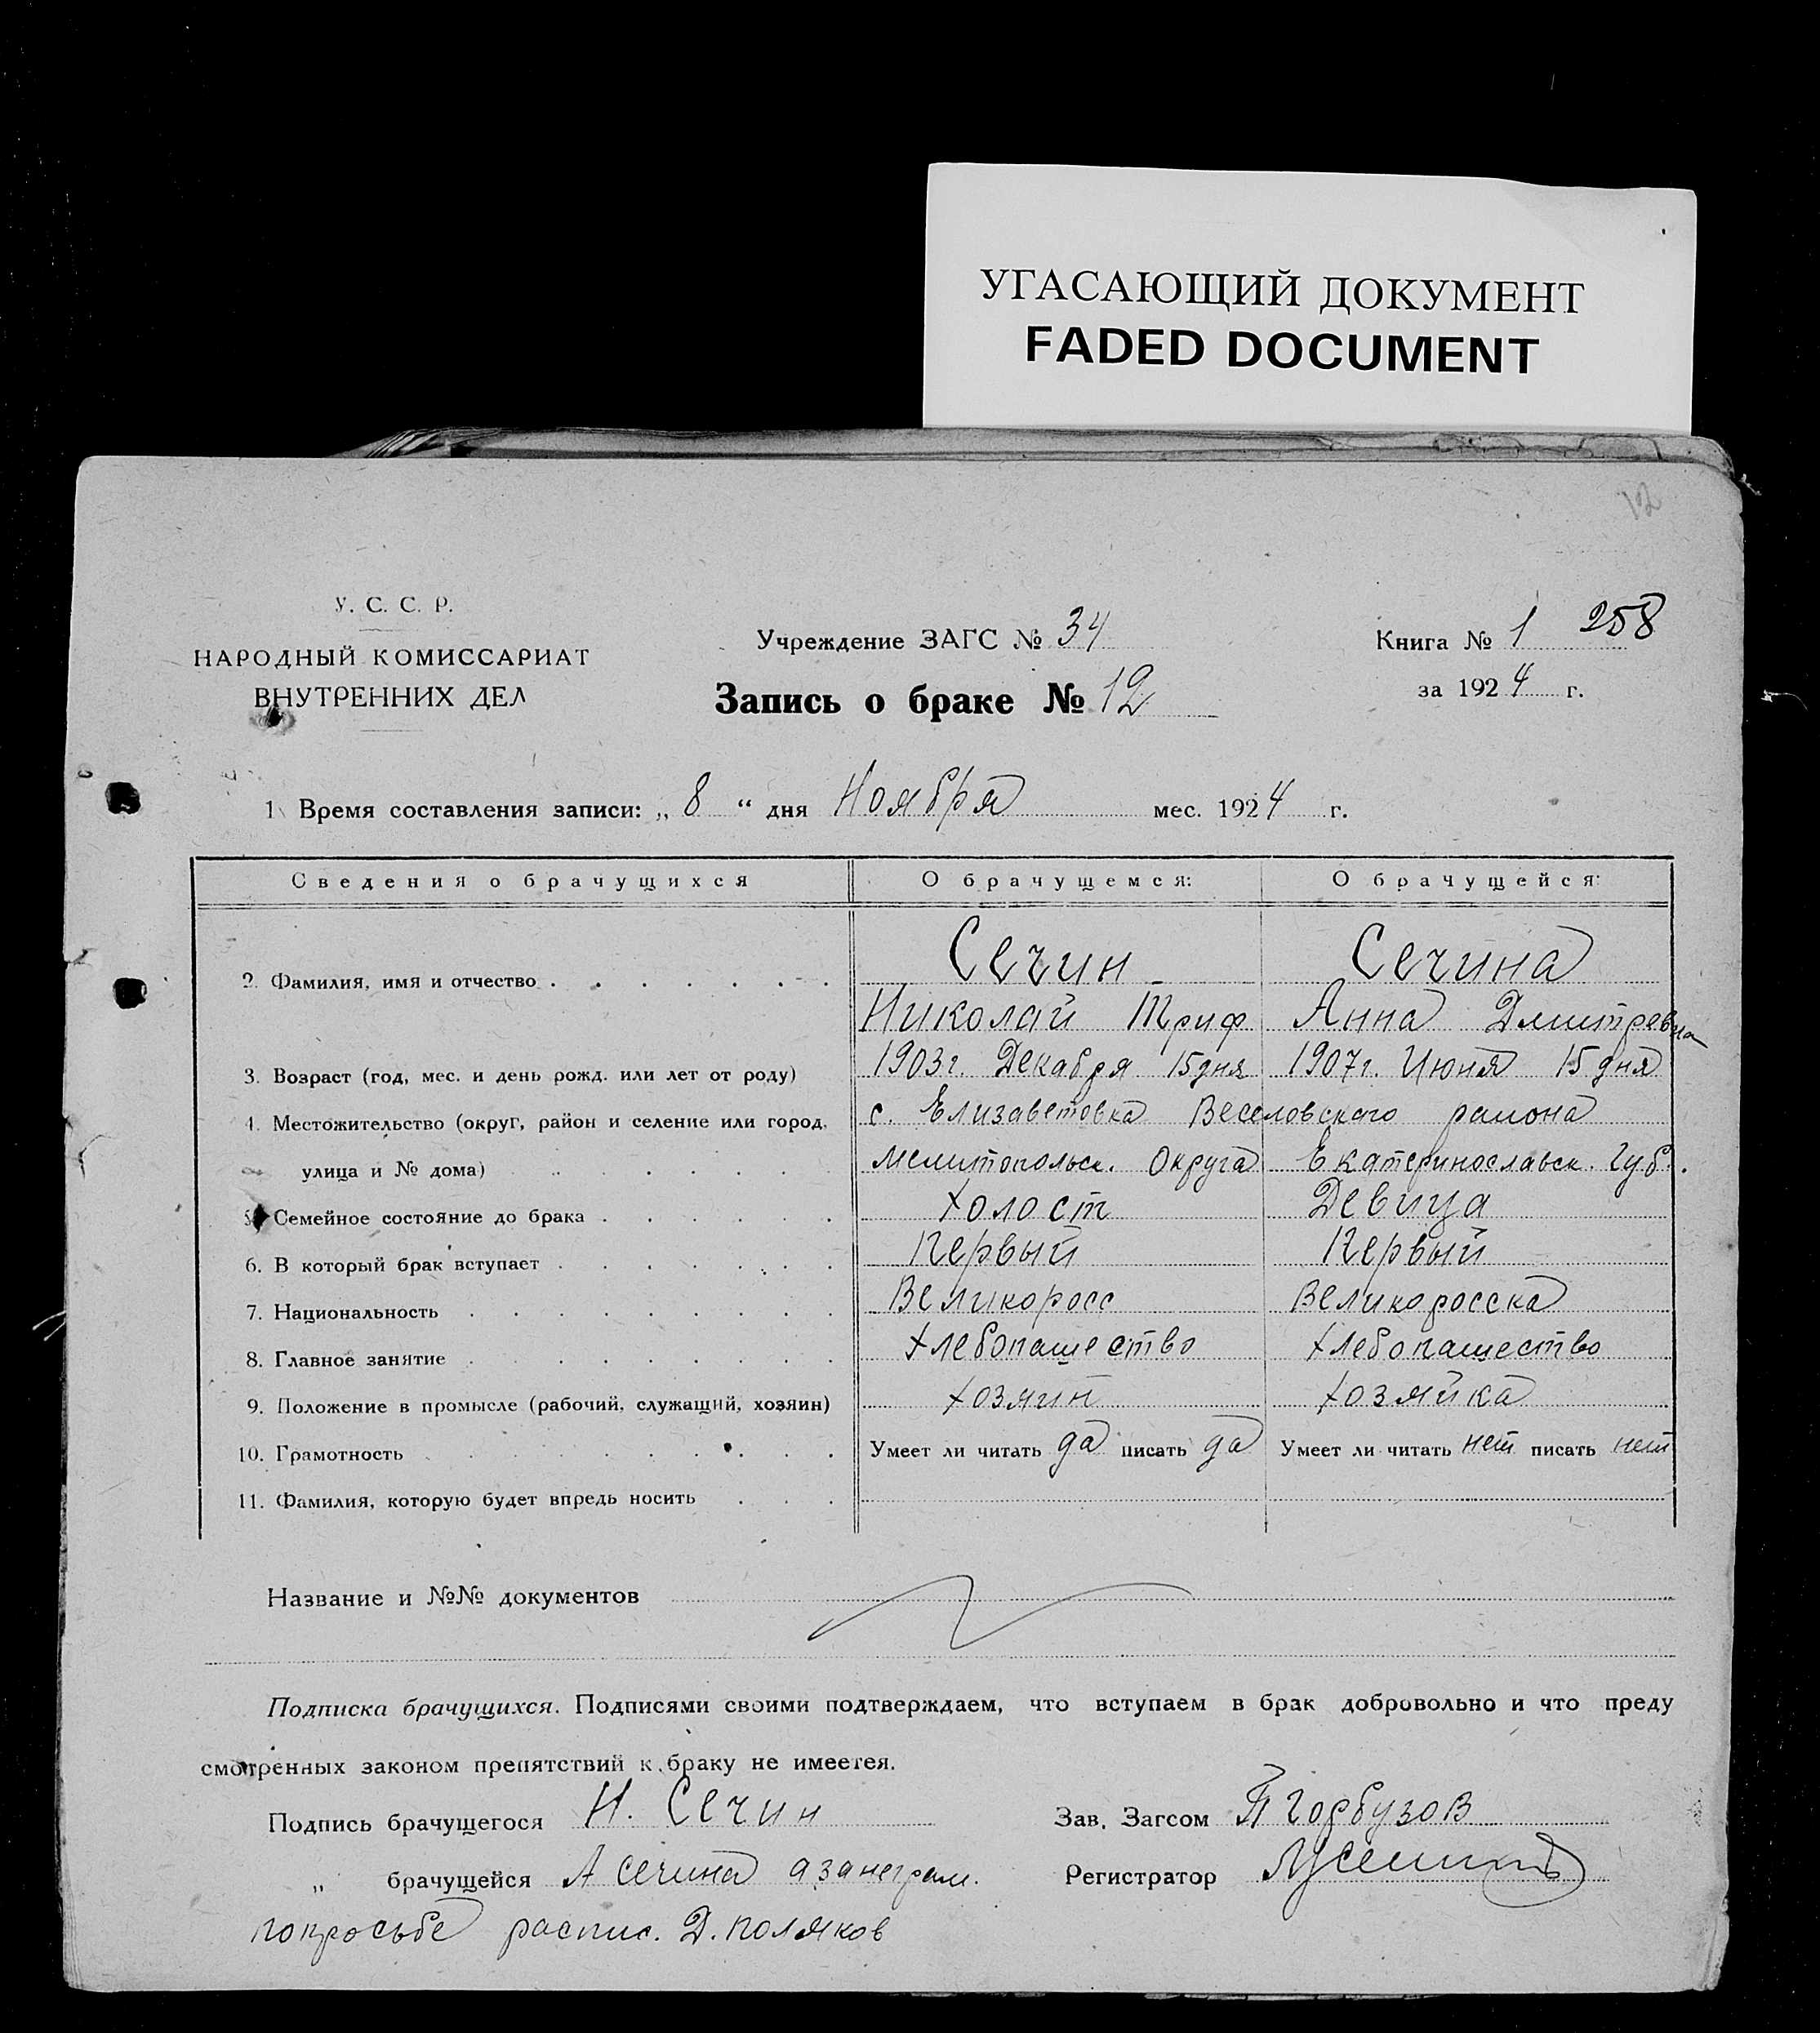 УГАСАЮЩИЙ ДОКУМЕНТ
FADED DOCUMENT
12
У. С. С. Р.
НАРОДНЫЙ КОМИССАРИАТ
ВНУТРЕННИХ ДЕЛ
Учреждение ЗАГС № 34
Запись о браке № 12
Книга № 1 258
за 1924 г.
1 Время составления записи: „ 8 “ дня Ноября мес. 1924 г.
Сведения о брачущихся О брачущемся: О брачущейся:
2. Фамилия, имя и отчество Сечин Сечина
Николай Триф Анна Дмитревна
3. Возраст (год, мес. и день рожд. или лет от роду) 1903г. Декабря 15 дня 1907г. Июня 15 дня
4. Местожительство (округ, район и селение или город, с. Елизаветовка Веселовского района
улица и № дома) Мелитопольск. Округа Екатеринославск. Губ.
5. Семейное состояние до брака Холост Девица
6. В который брак вступает Первый Первый
7. Национальность Великоросс Великоросска
8. Главное занятие Хлебопашество Хлебопашество
9. Положение в промысле (рабочий, служащий, хозяин) Хозяин Хозяйка
10. Грамотность Умеет ли читать да писать да Умеет ли читать нет писать нет
11. Фамилия, которую будет впредь носить
Название и №№ документов
Подписка брачущихся. Подписями своими подтверждаем, что вступаем в брак добровольно и что преду
смотренных законом препятствий к браку не имеется.
Подпись брачущегося Н. Сечин Зав. Загсом П Горбузов
„ брачущейся А Сечина а за неграм. Регистратор
по просьбе распис. Д. Поляков